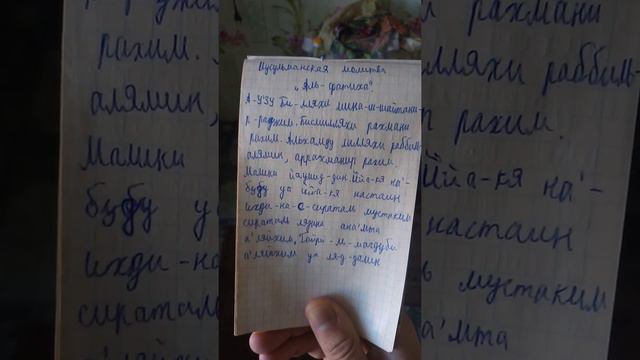 Мусульманская молитва
„Аль-фатиха".
А-узу би-лляхи мина-ш-шайтани-
р-раджим. Бисмилляхи рахмани
рахим. Альхамду лилляхи раббиль-
алямин, аррахманир рахим.
Малики йаумид-дин. Иййа-кя на'-
буду уа иййа-кя настаин
ихди-на-с-сираталь мустаким
сираталь лязина ана'мта
а'ляйхим, Гайри-ль-магдуби
а'ляйхим уа ля-д-далин